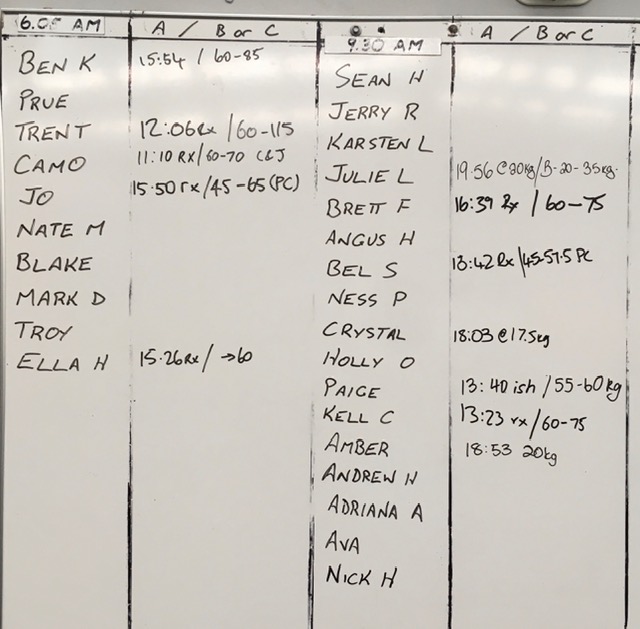 6.00 AM A / B or C
BEN K 15:54 / 60-85
PRUE
TRENT 12:06 Rx / 60-115
CAMO 11:10 RX / 60-70 C&J
JO 15.50 rx / 45-65 (PC)
NATE M
BLAKE
MARK D
TROY
ELLA H 15.26 Rx / →60
9.30 AM A / B or C
SEAN H
JERRY R
KARSTEN L
JULIE L 19.56 @ 20kg / B-20-35kg.
BRETT F 16:39 Rx / 60-75
ANGUS H
BEL S 13:42 Rx / 45-57.5 PC
NESS P
CRYSTAL 18:03 @ 17.5kg
HOLLY O
PAIGE 13:40 ish / 55-60kg
KELL C 13:23 rx / 60-75
AMBER 18:53 20kg
ANDREW H
ADRIANA A
AVA
NICK H